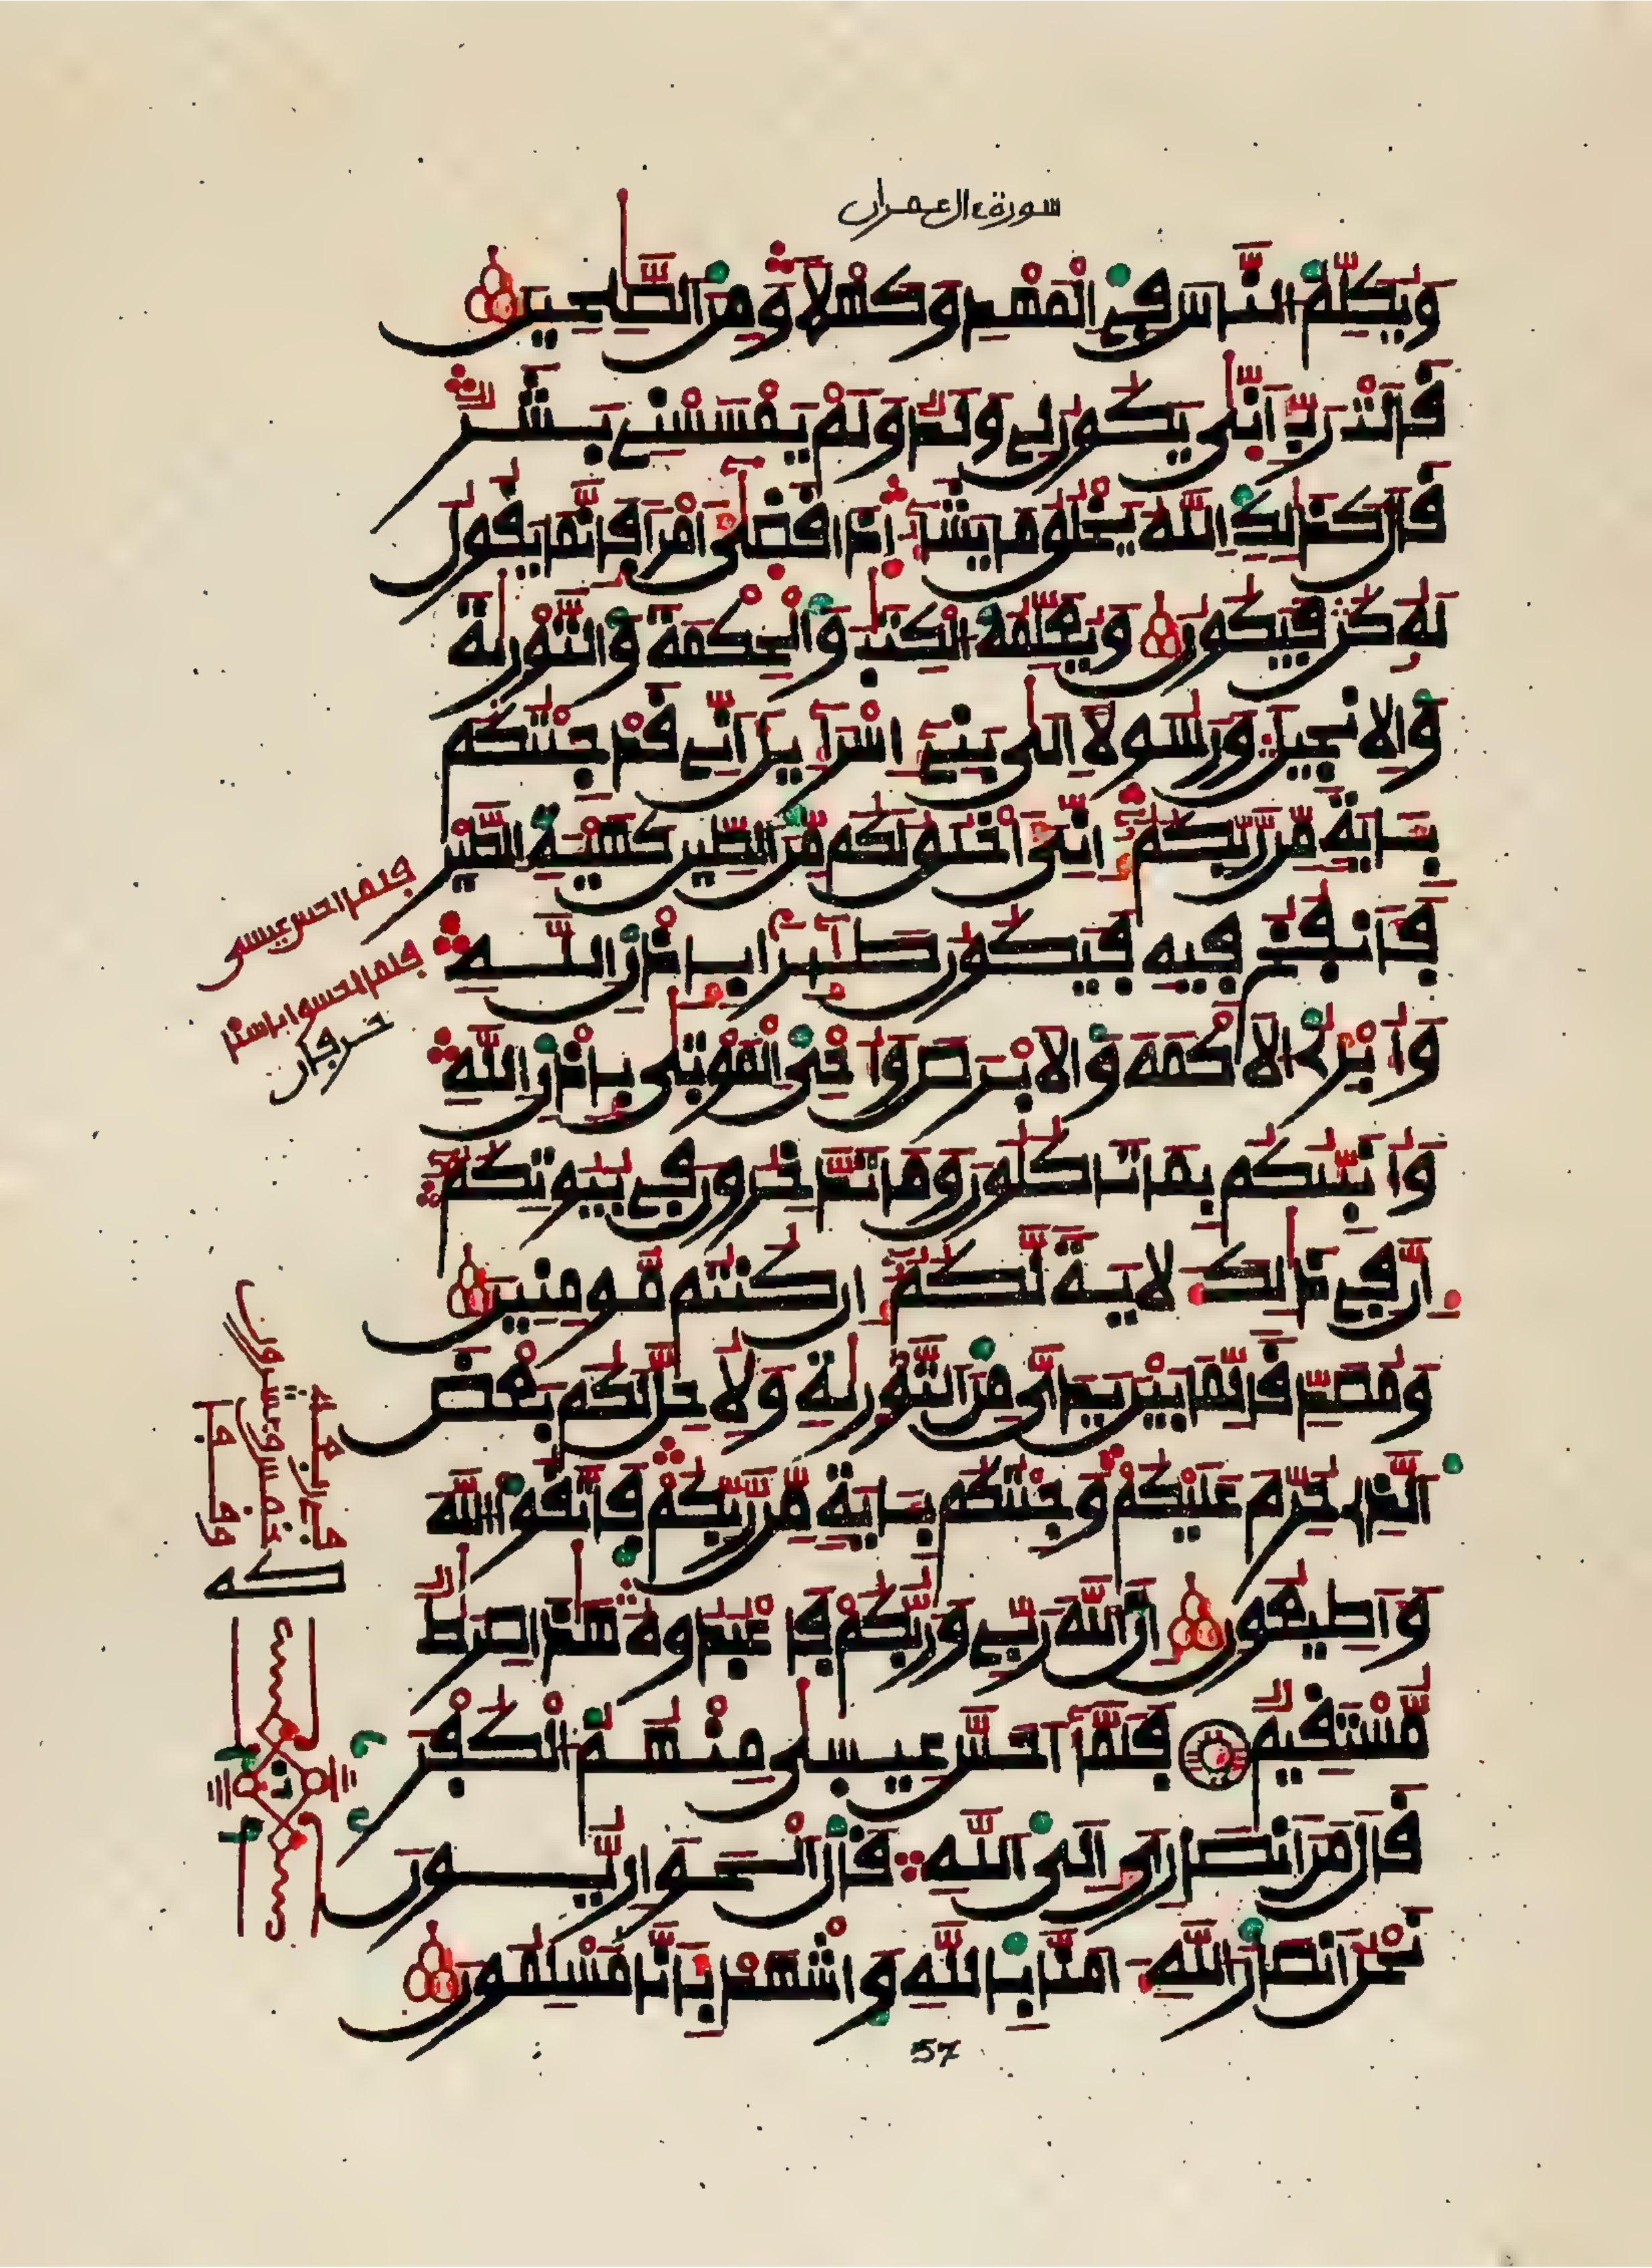 سورة ءال عمران
وَيُكَلِّمُ النَّاسَ فِي الْمَهْدِ وَكَهْلًا وَمِنَ الصَّٰلِحِينَ
قَالَتْ رَبِّ أَنّىٰ يَكُونُ لِي وَلَدٌ وَلَمْ يَمْسَسْنِي بَشَرٌ
قَالَ كَذَٰلِكِ اللَّهُ يَخْلُقُ مَا يَشَآءُ إِذَا قَضىٰٓ أَمْرًا فَإِنَّمَا يَقُولُ
لَهُ كُن فَيَكُونُ وَيُعَلِّمُهُ الْكِتَٰبَ وَالْحِكْمَةَ وَالتَّوْرىٰةَ
وَالِانجِيلَ وَرَسُولًا اِلىٰ بَنِيٓ إِسْرَآءِيلَ أَنِّي قَدْ جِئْتُكُم
بِـَٔايَةٍ مِّن رَّبِّكُمُۥٓ إِنِّيَ أَخْلُقُ لَكُم مِّنَ الطِّينِ كَهَيْـَٔةِ الطَّيْرِ
فَأَنفُخُ فِيهِ فَيَكُونُ طَٰٓئِرًا بِإِذْنِ اللَّهِ
وَأُبْرِئُ الَاكْمَهَ وَالَابْرَصَ وَأُحْيِ الْمَوْتىٰ بِإِذْنِ اللَّهِ
وَأُنَبِّئُكُم بِمَا تَاكُلُونَ وَمَا تَدَّخِرُونَ فِي بُيُوتِكُمُۥٓ
إِنَّ فِي ذَٰلِكَ لَأيَةً لَّكُمُۥٓ إِن كُنتُم مُّومِنِينَ
وَمُصَدِّقًا لِّمَا بَيْنَ يَدَيَّ مِنَ التَّوْرىٰةِ وَلِأُحِلَّ لَكُم بَعْضَ
الَّذِي حُرِّمَ عَلَيْكُمْ وَجِئْتُكُم بِـَٔايَةٍ مِّن رَّبِّكُمْ فَاتَّقُوا اللَّهَ
وَأَطِيعُونِ إِنَّ اللَّهَ رَبِّي وَرَبُّكُمْ فَاعْبُدُوهُ هَٰذَا صِرَٰطٌ
مُّسْتَقِيمٌ فَلَمَّآ أَحَسَّ عِيسىٰ مِنْهُمُ الْكُفْرَ
قَالَ مَنَ أَنصَارِيَ إِلَى اللَّهِ قَالَ الْحَوَارِيُّونَ
نَحْنُ أَنصَارُ اللَّهِ ءَامَنَّا بِاللَّهِ وَاشْهَدْ بِأَنَّا مُسْلِمُونَ
57
فلما احس عيسى